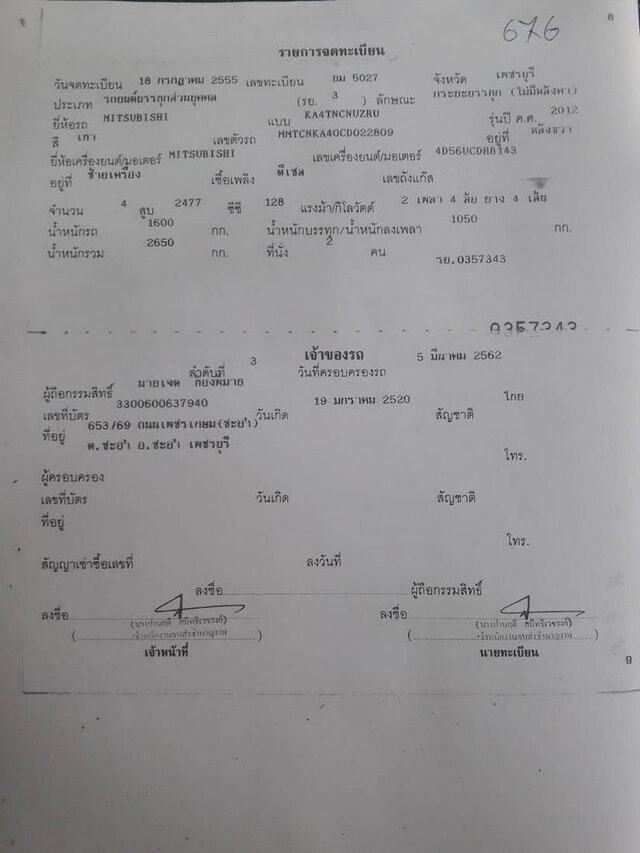 8
676
รายการจดทะเบียน
วันจดทะเบียน 18 กรกฎาคม 2555 เลขทะเบียน ยม 5027 จังหวัด เพชรบุรี
ประเภท รถยนต์บรรทุกส่วนบุคคล (รย. 3 ) ลักษณะ กระยะบรรทุก (ไม่มีหลังคา)
ยี่ห้อรถ MITSUBISHI แบบ KA4TNCNUZRU รุ่นปี ค.ศ. 2012
สี เทา เลขตัวรถ MMTCNKA40CD022809 อยู่ที่ หลังขวา
ยี่ห้อเครื่องยนต์/มอเตอร์ MITSUBISHI เลขเครื่องยนต์/มอเตอร์ 4D56UCDH8143
อยู่ที่ ซ้ายเครื่อง เชื้อเพลิง ดีเซล เลขถังแก๊ส
จำนวน 4 สูบ 2477 ซีซี 128 แรงม้า/กิโลวัตต์ 2 เพลา 4 ล้อ ยาง 4 เส้น
น้ำหนักรถ 1600 กก. น้ำหนักบรรทุก/น้ำหนักลงเพลา 1050 กก.
น้ำหนักรวม 2650 กก. ที่นั่ง 2 คน
รย.0357343
0357343
เจ้าของรถ
ลำดับที่ 3 วันที่ครอบครองรถ 5 มีนาคม 2562
ผู้ถือกรรมสิทธิ์ นายเจต
เลขที่บัตร 3300600637940 วันเกิด 19 มกราคม 2520 สัญชาติ ไทย
ที่อยู่ 653/69 ถนนเพชรเกษม(ชะอำ)
ต.ชะอำ อ.ชะอำ เพชรบุรี
โทร.
ผู้ครอบครอง
เลขที่บัตร วันเกิด สัญชาติ
ที่อยู่
โทร.
สัญญาเช่าซื้อเลขที่ ลงวันที่
ลงชื่อ ผู้ถือกรรมสิทธิ์
ลงชื่อ ลงชื่อ
เจ้าพนักงานขนส่งชำนาญงาน เจ้าพนักงานขนส่งชำนาญงาน
เจ้าหน้าที่ นายทะเบียน
9